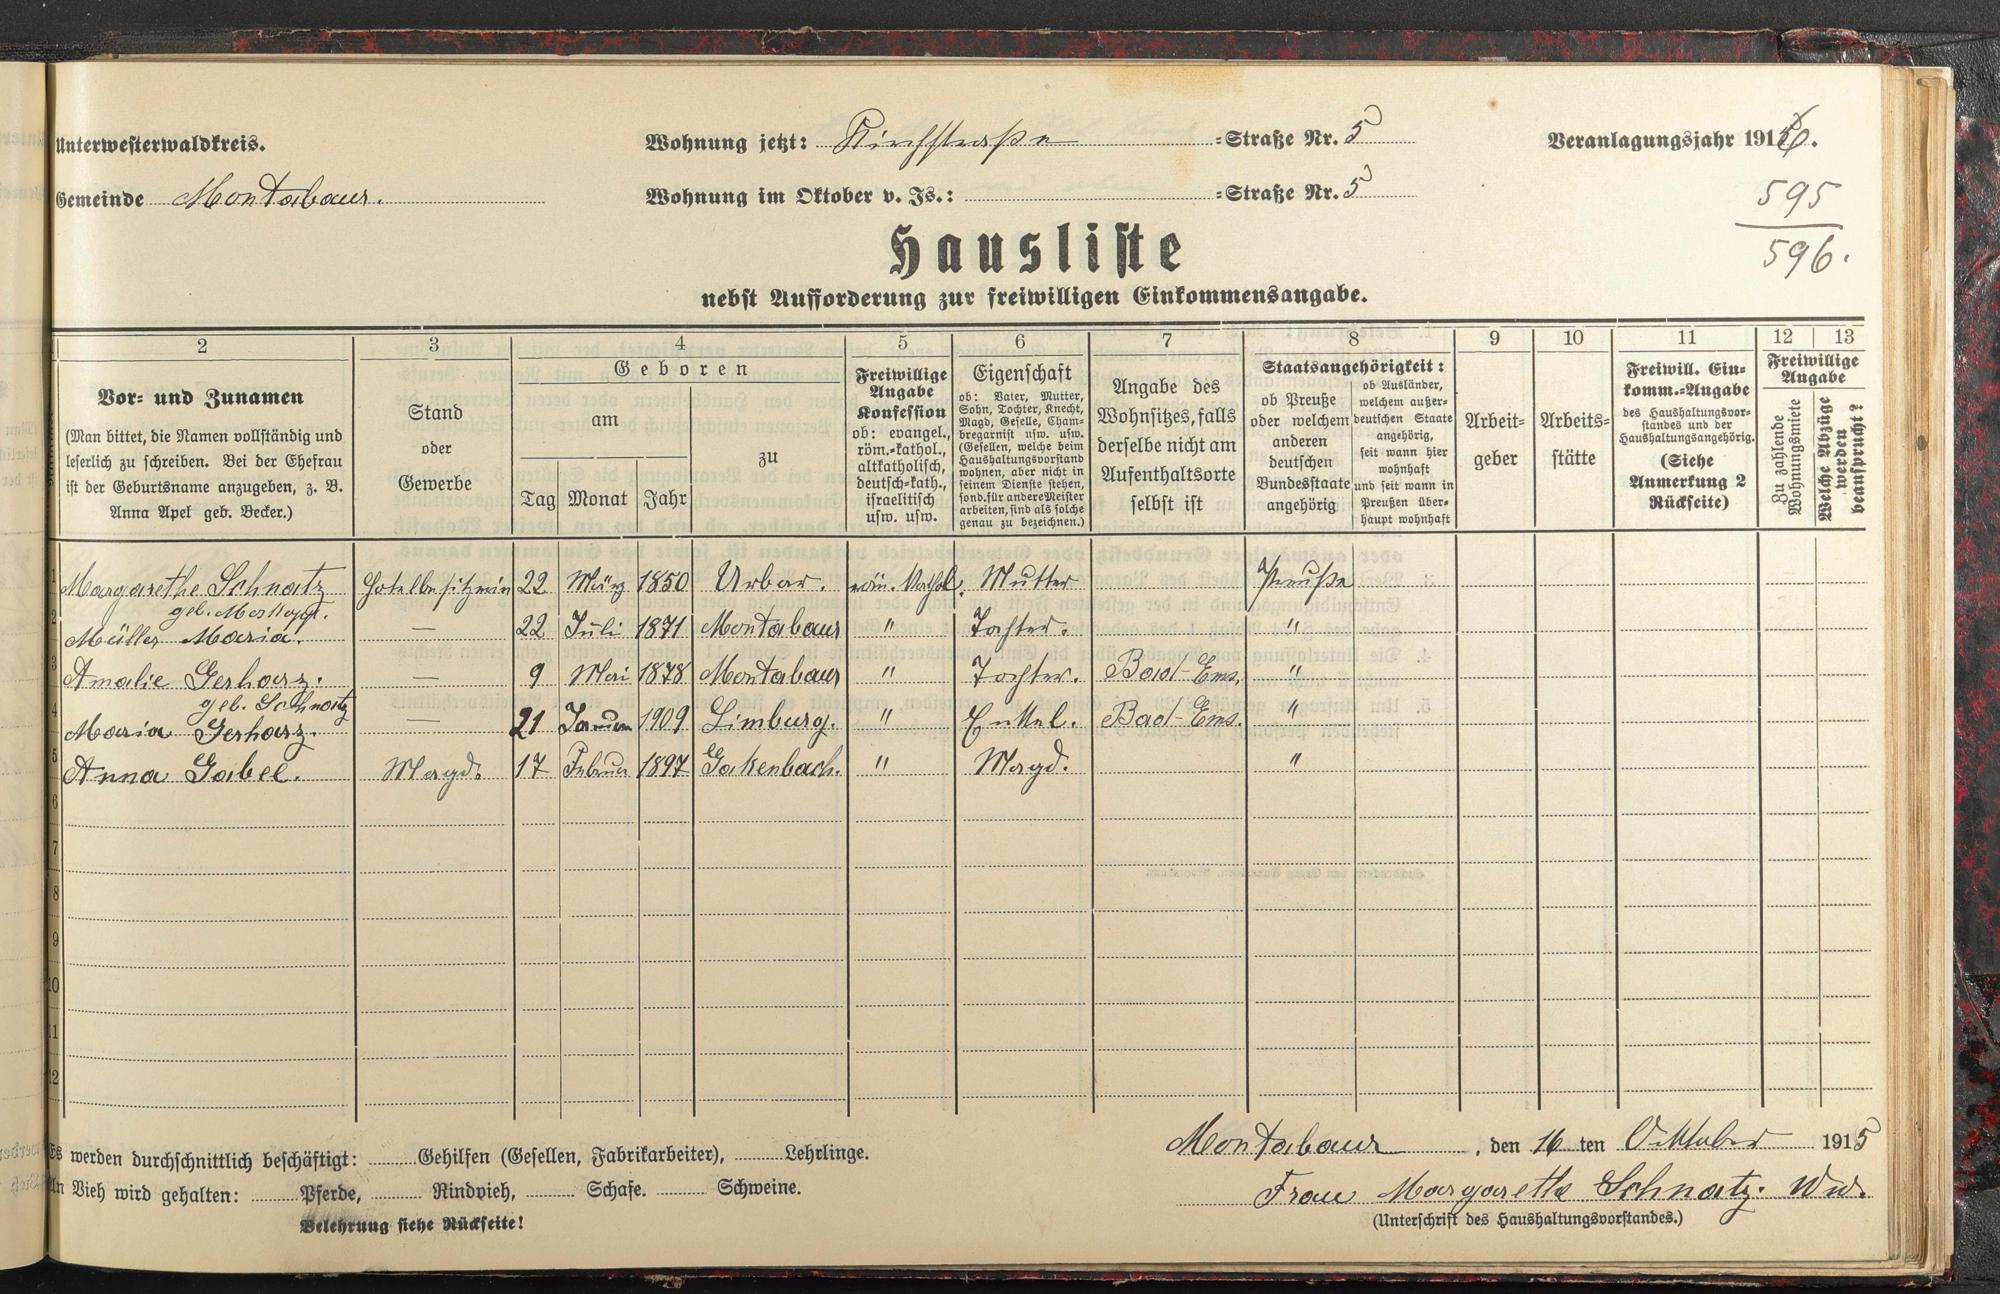 Unterwesterwaldkreis.
Wohnung jetzt: Kirchstrasse -Straße Nr. 5
Veranlagungsjahr 1916.
Gemeinde Montabaur.
Wohnung im Oktober v. Js.: -Straße Nr. 5
595
596.
Hausliste
nebst Aufforderung zur freiwilligen Einkommensangabe.
2 3 4 5 6 7 8 9 10 11 12 13
Vor- und Zunamen
(Man bittet, die Namen vollständig und
leserlich zu schreiben. Bei der Ehefrau
ist der Geburtsname anzugeben, z. B.
Anna Apel geb. Becker.)
Stand
oder
Gewerbe
Geboren
am
zu
Tag Monat Jahr
Freiwillige
Angabe
Konfession
ob: evangel.,
röm.-kathol.,
altkatholisch,
deutsch-kath.,
israelitisch
usw. usw.
Eigenschaft
ob: Vater, Mutter,
Sohn, Tochter, Knecht,
Magd, Geselle, Cham-
bregarnist usw. usw.
(Gesellen, welche beim
Haushaltungsvorstand
wohnen, aber nicht in
seinem Dienste stehen,
sond. für andere Meister
arbeiten, sind als solche
genau zu bezeichnen.)
Angabe des
Wohnsitzes, falls
derselbe nicht am
Aufenthaltsorte
selbst ist
Staatsangehörigkeit:
ob Preuße
oder welchem
anderen
deutschen
Bundesstaate
angehörig
ob Ausländer,
welchem außer-
deutschen Staate
angehörig,
seit wann hier
wohnhaft
und seit wann in
Preußen über-
haupt wohnhaft
Arbeit-
geber
Arbeits-
stätte
Freiwill. Ein-
komm.-Angabe
des Haushaltungsvor-
standes und der
Haushaltungsangehörig.
(Siehe
Anmerkung 2
Rückseite)
Freiwillige
Angabe
Zu zahlende
Wohnungsmiete
Welche Abzüge
werden
beansprucht?
1 Margarethe Schnatz Hotelbesitzerin 22 März 1850 Urbar. röm. Kathol. Mutter Preuße
geb.
2 Müller Maria. — 22 Juli 1871 Montabaur " Tochter. "
3 Amalie Gerharz. — 9 Mai 1878 Montabaur " Tochter. Bad-Ems. "
geb. Schnatz
4 Maria Gerharz. — 21 Januar 1909 Limburg. " Enkel. Bad-Ems. "
5 Anna Gabel. Magd. 17 Februar 1897 Gackenbach. " Magd. "
6
7
8
9
10
11
12
Es werden durchschnittlich beschäftigt: Gehilfen (Gesellen, Fabrikarbeiter), Lehrlinge.
An Vieh wird gehalten: Pferde, Rindvieh, Schafe. Schweine.
Belehrung siehe Rückseite!
Montabaur, den 16 ten Oktober 1915
Frau Margarethe Schnatz. Ww.
(Unterschrift des Haushaltungsvorstandes.)